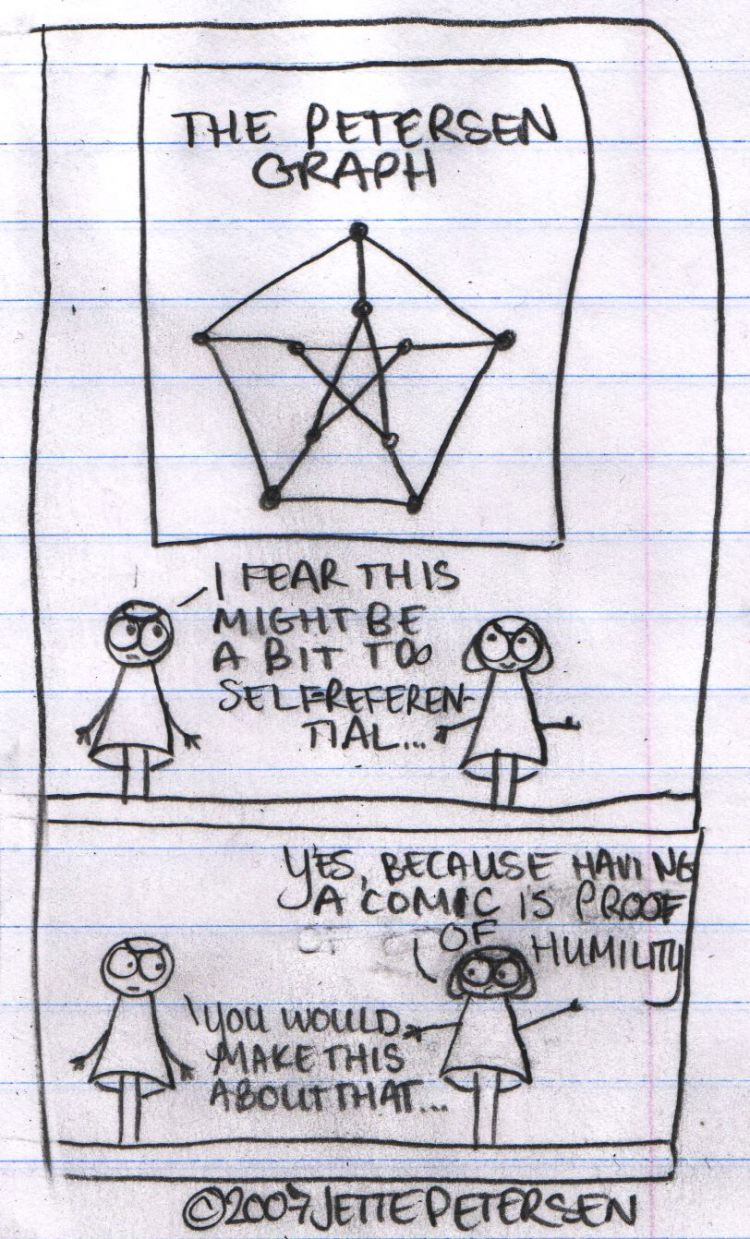 THE PETERSEN
GRAPH
I FEAR THIS
MIGHT BE
A BIT TOO
SELFREFEREN-
TIAL...
YES, BECAUSE HAVING
A COMIC IS PROOF
OF HUMILITY
YOU WOULD
MAKE THIS
ABOUT THAT...
©2007 JETTE PETERSEN